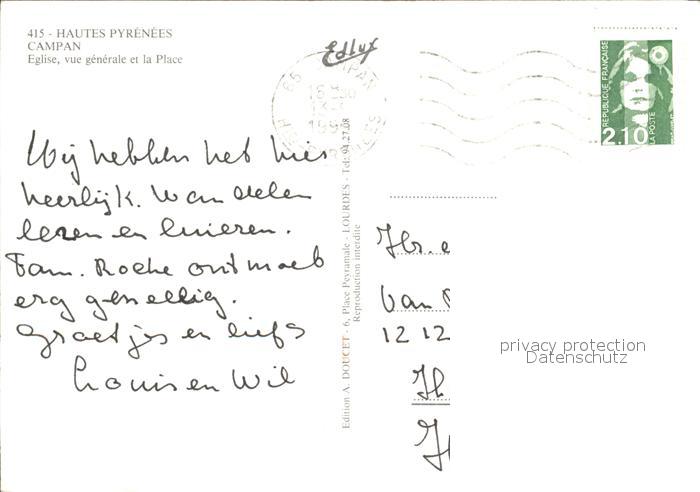 415 - HAUTES PYRÉNÉES
CAMPAN
Eglise, vue générale et la Place
Edlux
65 CAMPAN
16 H
HTES PYRENEES
REPUBLIQUE FRANÇAISE
2,10
LA POSTE
Wij hebben het hier
heerlijk. Wandelen
lezen en luieren.
Fam. Roche ontmoet
erg gezellig.
Groetjes en liefs
Louis en Wil
Edition A. DOUCET - 6, Place Peyramale - LOURDES - Tel: 94.27.08
Reproduction interdite
Van
1212
privacy protection
Datenschutz